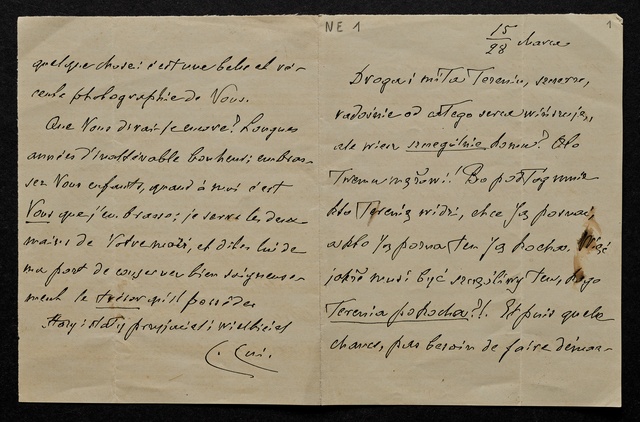 quelque chose: c'est une belle et ré-
cente photographie de Vous.
Que Vous dirai-je encore? Longues
années d'inaltérable bonheur; embras-
sez Vos enfants, quand à moi c'est
Vous que j'embrasse; je serre les deux
mains de Votre mari, et dites lui de
ma part de conserver bien soigneuse-
ment le trésor qu'il possède
Stary i stały przyjaciel i wielbiciel
C. Cui.
NE 1
1
15/28 Marca
Droga i miła Tereniu, szczerze,
radośnie od całego serca winszuję,
ale wiesz szczególnie komu? Oto
Twemu mężowi! Bo podług mnie
kto Terenię widzi, chce ją poznać,
a kto ją pozna ten ją kocha. Więc
jakże musi być szczęśliwy ten, kogo
Terenia pokocha?!. Et puis quelle
chance, pas besoin de faire démar-